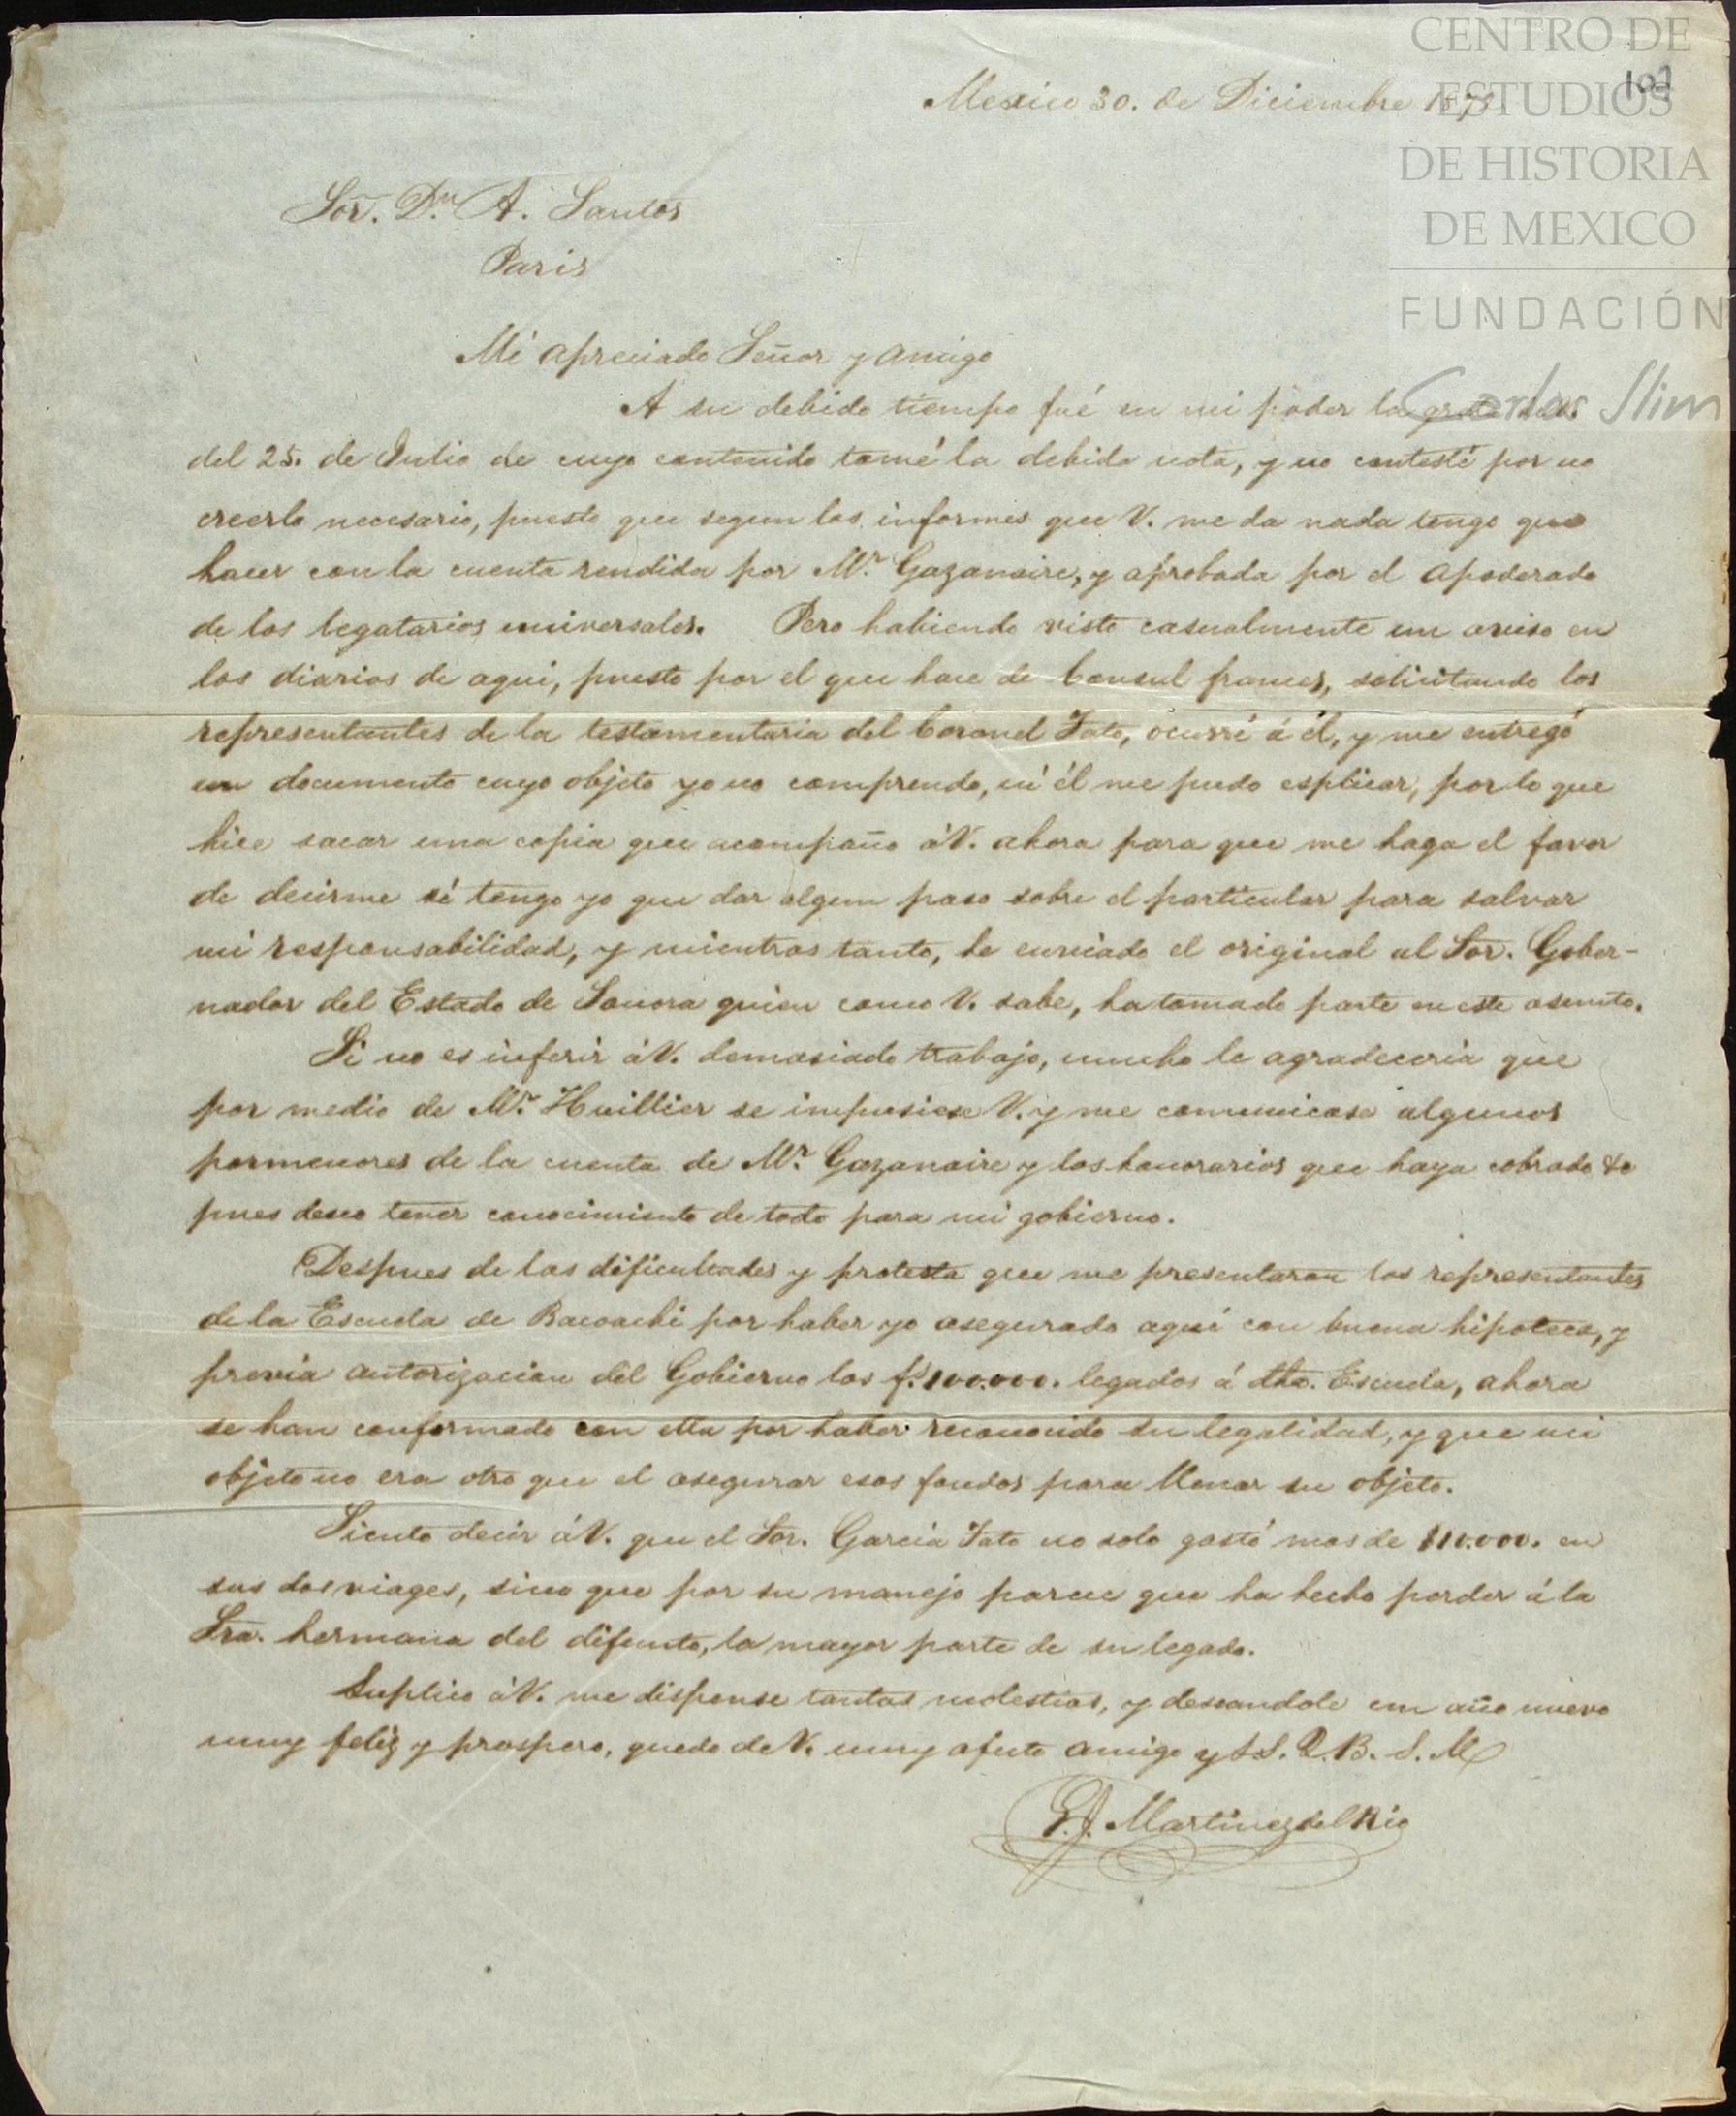 CENTRO DE
ESTUDIOS
DE HISTORIA
DE MEXICO
FUNDACIÓN
Carlos Slim
Mexico 30. de Diciembre
Sor. Dn. A. Santos
Paris
Mi apreciado Señor y amigo
A su debido tiempo fué en mi poder la grata
del 25. de Julio de cuyo contenido tomé la debida nota, y no contesté por no
creerlo necesario, puesto que segun los informes que V. me da nada tengo que
hacer con la cuenta rendida por Mr. Gazanaire, y aprobada por el apoderado
de los legatarios universales. Pero habiendo visto casualmente un aviso en
los diarios de aqui, puesto por el que hace de Consul frances, solicitando los
representantes de la testamentaria del Coronel Tato, ocurrí á él, y me entregó
un documento cuyo objeto yo no comprendo, ni él me pudo esplicar, por lo que
hice sacar una copia que acompaño á V. ahora para que me haga el favor
de decirme si tengo yo que dar algun paso sobre el particular para salvar
mi responsabilidad, y mientras tanto, he enviado el original al Sor. Gober-
nador del Estado de Sonora quien como V. sabe, ha tomado parte en este asunto.
Si no es inferir á V. demasiado trabajo, mucho le agradeceria que
por medio de Mr. Huillier se impusiese V. y me comunicase algunos
pormenores de la cuenta de Mr. Gazanaire y los honorarios que haya cobrado &a
pues deseo tener conocimiento de todo para mi gobierno.
Despues de las dificultades y protesta que me presentaron los representantes
de la Escuela de Bacoachi por haber yo asegurado aquí con buena hipoteca, y
previa autorizacion del Gobierno los f. 100.000. legados á dha. Escuela, ahora
se han conformado con ella por haber reconocido su legalidad, y que mi
objeto no era otro que el asegurar esos fondos para llenar su objeto.
Siento decir á V. que el Sor. Garcia Tato no solo gastó mas de $10.000. en
sus dos viages, sino que por su manejo parece que ha hecho perder á la
Sra. hermana del difunto, la mayor parte de su legado.
Suplico á V. me dispense tantas molestias, y deseandole un año nuevo
muy feliz y prospero, quedo de V. muy afecto amigo y S.S. Q. B. S. M
Martinez del Rio